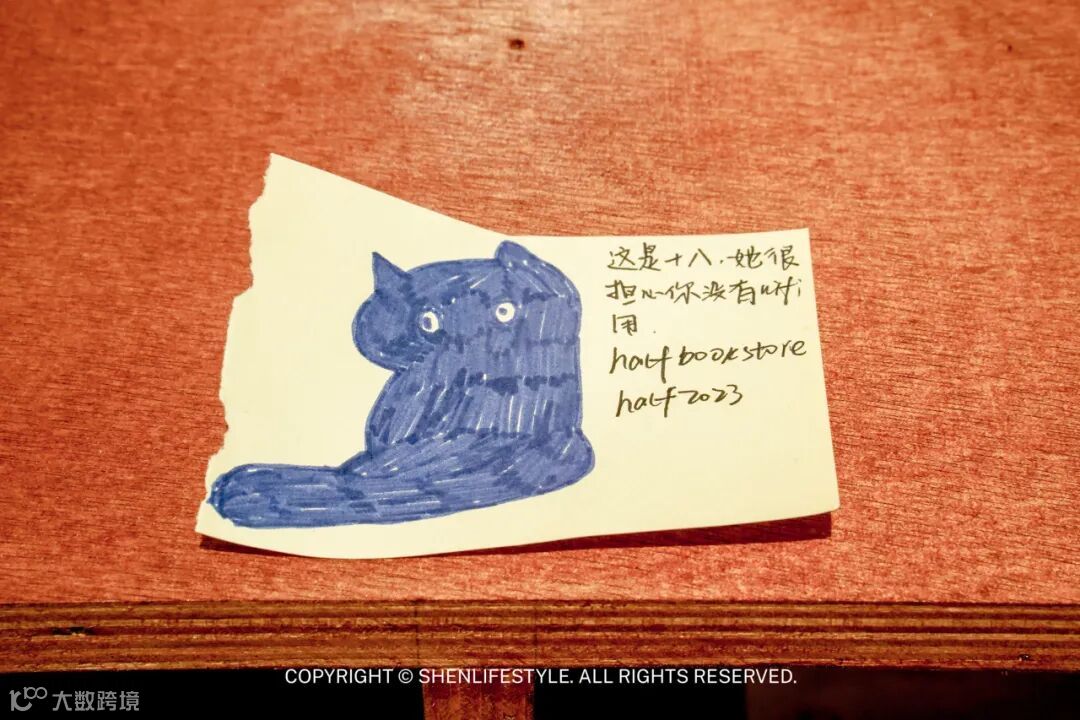 这是十八.她很
担心你没有wifi
用.
half bookstore
half2023
COPYRIGHT © SHENLIFESTYLE. ALL RIGHTS RESERVED.
大数跨境